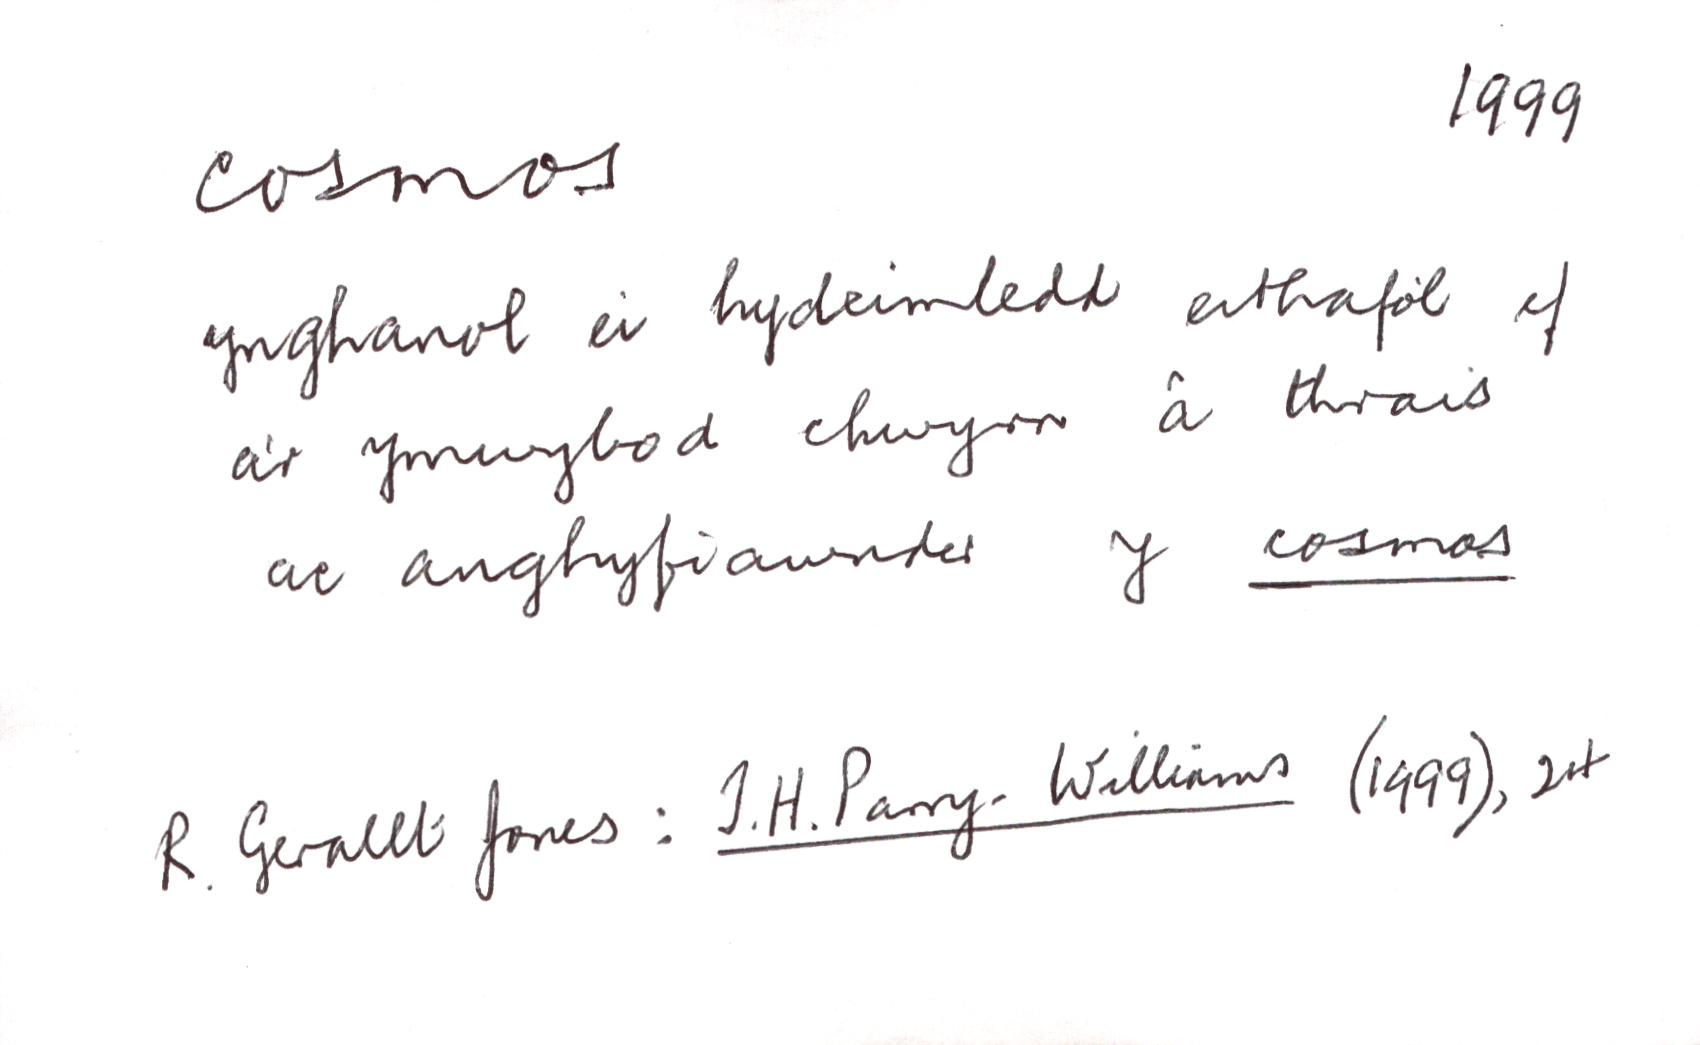 1999
cosmos
ynghanol ei hydeimledd eithafol ef
a'r ymwybod chwyrn â thrais
ac anghyfiawnder y cosmos
R. Gerallt Jones: T.H. Parry-Williams (1999),